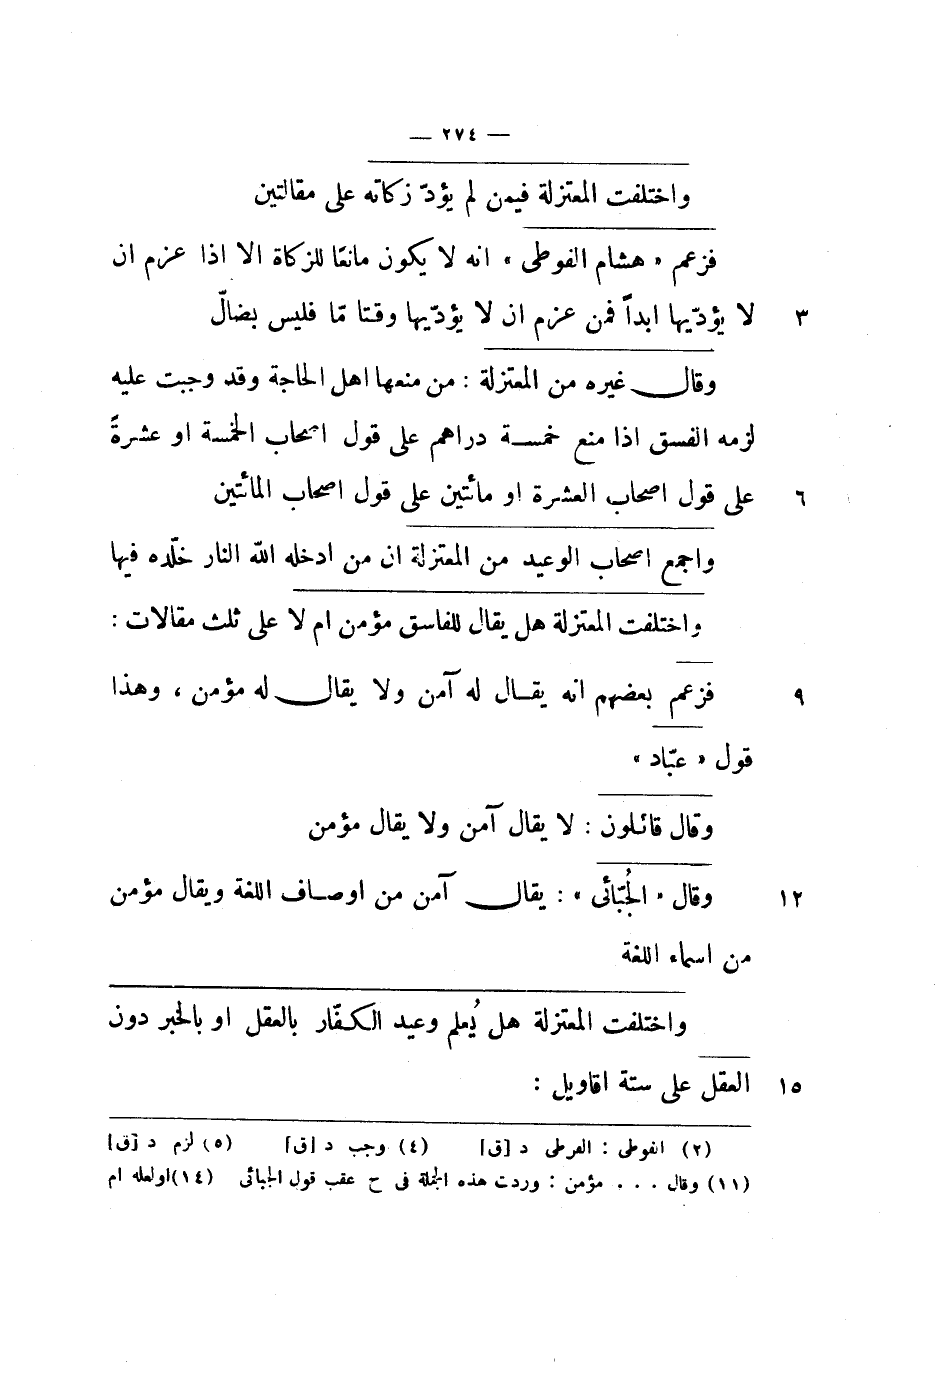 — ٢٧٤ —
واختلفت المعتزلة فيمن لم يؤدّ زكاته على مقالتين
فزعم « هشام الفوطى » انه لا يكون مانعًا للزكاة الا اذا عزم ان
٣ لا يؤدّيها ابداً فمن عزم ان لا يؤدّيها وقتا مّا فليس بضالّ
وقال غيره من المعتزلة : من منعها اهل الحاجة وقد وجبت عليه
لزمه الفسق اذا منع خمسة دراهم على قول اصحاب الخمسة او عشرةً
٦ على قول اصحاب العشرة او مائتين على قول اصحاب المائتين
واجمع اصحاب الوعيد من المعتزلة ان من ادخله الله النار خلّده فيها
واختلفت المعتزلة هل يقال للفاسق مؤمن ام لا على ثلث مقالات :
٩ فزعم بعضهم انه يقال له آمن ولا يقال له مؤمن ، وهذا
قول « عبّاد »
وقال قائلون : لا يقال آمن ولا يقال مؤمن
١٢ وقال « الجُبّائى » : يقال آمن من اوصاف اللغة ويقال مؤمن
من اسماء اللغة
واختلفت المعتزلة هل يُعلم وعيد الكفّار بالعقل او بالخبر دون
١٥ العقل على ستة اقاويل :
(٢) الفوطى : الفرطى د [ق] (٤) وجب د [ق] (٥) لزم د [ق]
(١١) وقال . . . مؤمن : وردت هذه الجملة فى ح عقب قول الجبائى (١٤) او لعله ام